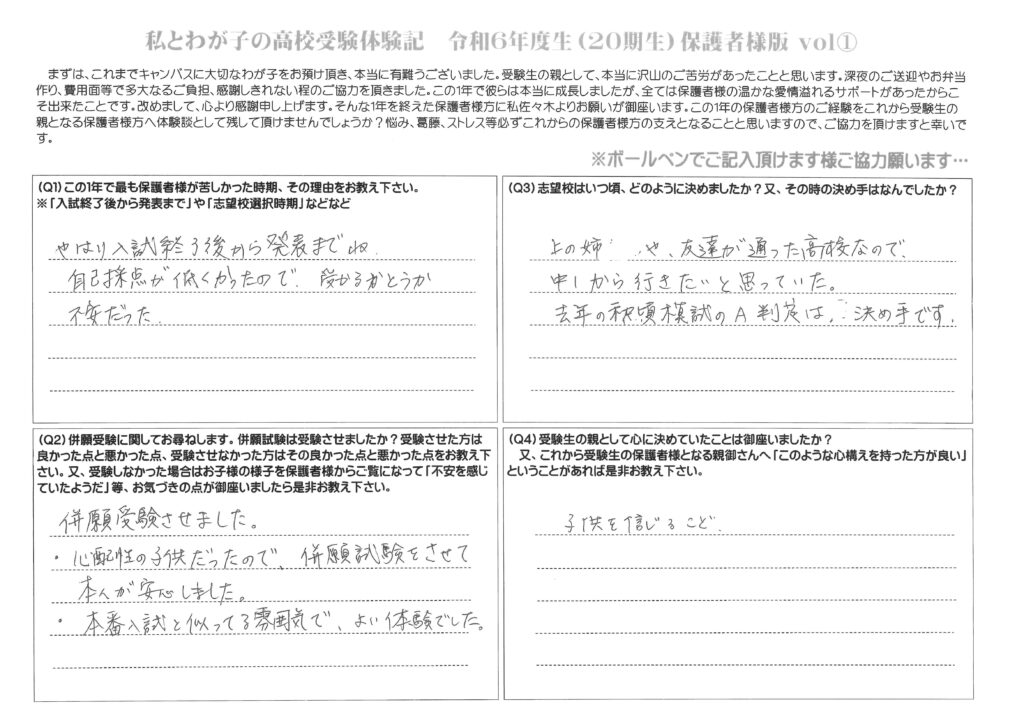 私とわが子の高校受験体験記　令和6年度生(20期生)保護者様版 vol①
まずは、これまでキャンパスに大切なわが子をお預け頂き、本当に有難うございました。受験生の親として、本当に沢山のご苦労があったことと思います。深夜のご送迎やお弁当
作り、費用面等で多大なるご負担、感謝しきれない程のご協力を頂きました。この1年で彼らは本当に成長しましたが、全ては保護者様の温かな愛情溢れるサポートがあったからこ
そ出来たことです。改めまして、心より感謝申し上げます。そんな1年を終えた保護者様方に私佐々木よりお願いが御座います。この1年の保護者様方のご経験をこれから受験生の
親となる保護者様方へ体験談として残して頂けませんでしょうか？悩み、葛藤、ストレス等必ずこれからの保護者様方の支えとなることと思いますので、ご協力を頂けますと幸いで
す。
※ボールペンでご記入頂けます様ご協力願います…
(Q1)この1年で最も保護者様が苦しかった時期、その理由をお教え下さい。
※「入試終了後から発表まで」や「志望校選択時期」などなど
やはり入試終了後から発表までね
自己採点が低くかったので、受かるかどうか
不安だった.
(Q2)併願受験に関してお尋ねします。併願試験は受験させましたか？受験させた方は
良かった点と悪かった点、受験させなかった方はその良かった点と悪かった点をお教え下
さい。又、受験しなかった場合はお子様の様子を保護者様からご覧になって「不安を感じ
ていたようだ」等、お気づきの点が御座いましたら是非お教え下さい。
併願受験させました。
・心配性の子供だったので、併願試験をさせて
本人が安心しました。
・本番入試と似ってる雰囲気で、よい体験でした。
(Q3)志望校はいつ頃、どのように決めましたか？又、その時の決め手はなんでしたか？
上の姉 や、友達が通った高校なので、
中1から行きたいと思っていた。
去年の秋頃模試のA判定は、決め手です.
(Q4)受験生の親として心に決めていたことは御座いましたか？
又、これから受験生の保護者様となる親御さんへ「このような心構えを持った方が良い」
ということがあれば是非お教え下さい。
子供を信じること.